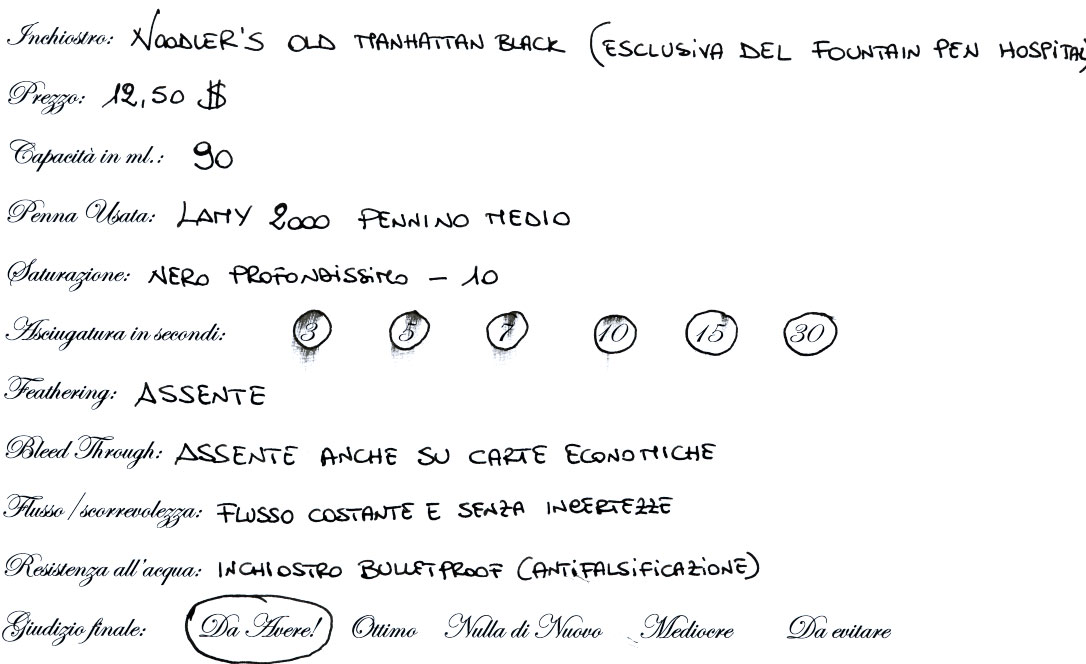 Inchiostro: NOODLER'S OLD MANHATTAN BLACK (ESCLUSIVA DEL FOUNTAIN PEN HOSPITAL)
Prezzo: 12,50 $
Capacità in ml.: 90
Penna Usata: LAMY 2000 PENNINO MEDIO
Saturazione: NERO PROFONDISSIMO - 10
Asciugatura in secondi: 3 5 7 10 15 30
Feathering: ASSENTE
Bleed Through: ASSENTE ANCHE SU CARTE ECONOMICHE
Flusso/scorrevolezza: FLUSSO COSTANTE E SENZA INCERTEZZE
Resistenza all'acqua: INCHIOSTRO BULLETPROOF (ANTIFALSIFICAZIONE)
Giudizio finale: Da Avere! Ottimo Nulla di Nuovo Mediocre Da evitare